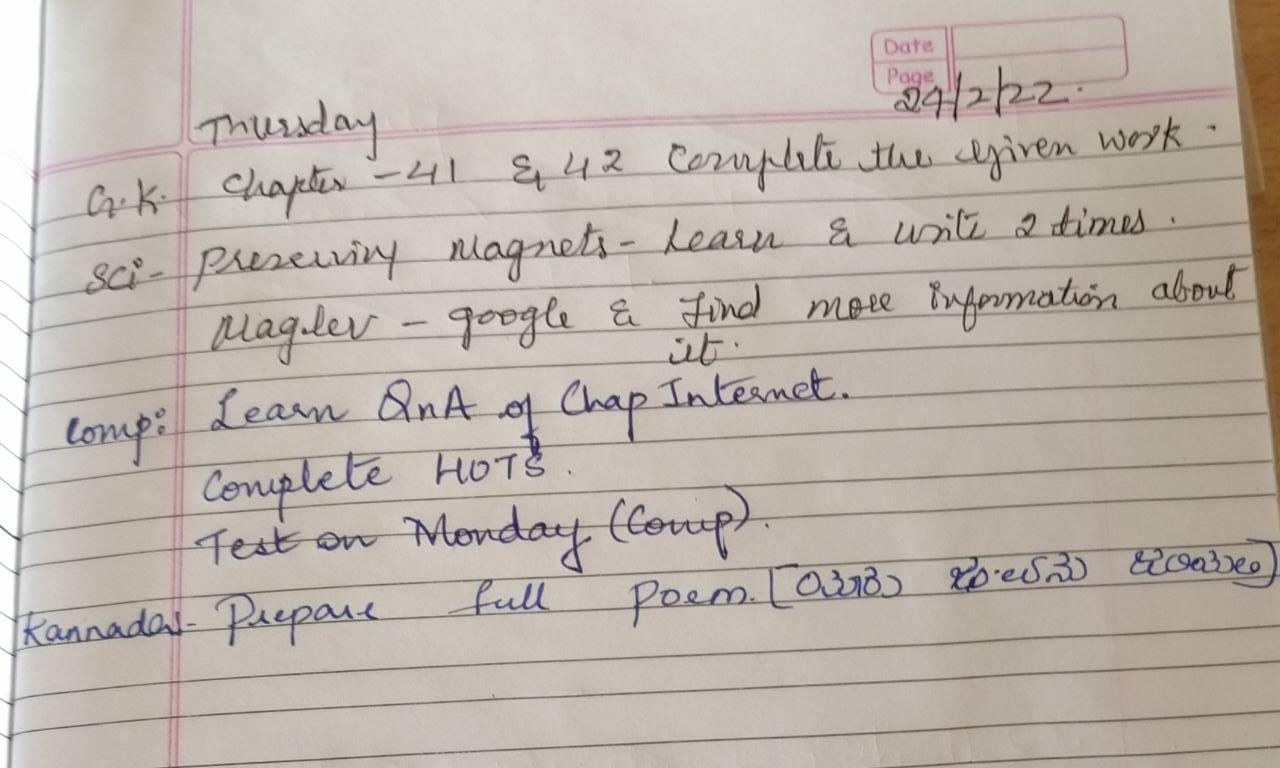 Date
Page
24/2/22.
Thursday
G.K. Chapter - 41 & 42 Complete the given work.
Sci - Preserving Magnets - Learn & write 2 times.
Maglev - google & find more information about
it.
Comp: Learn QnA of Chap Internet.
Complete HOTS.
Test on Monday (Comp).
Kannada - Prepare full Poem. [